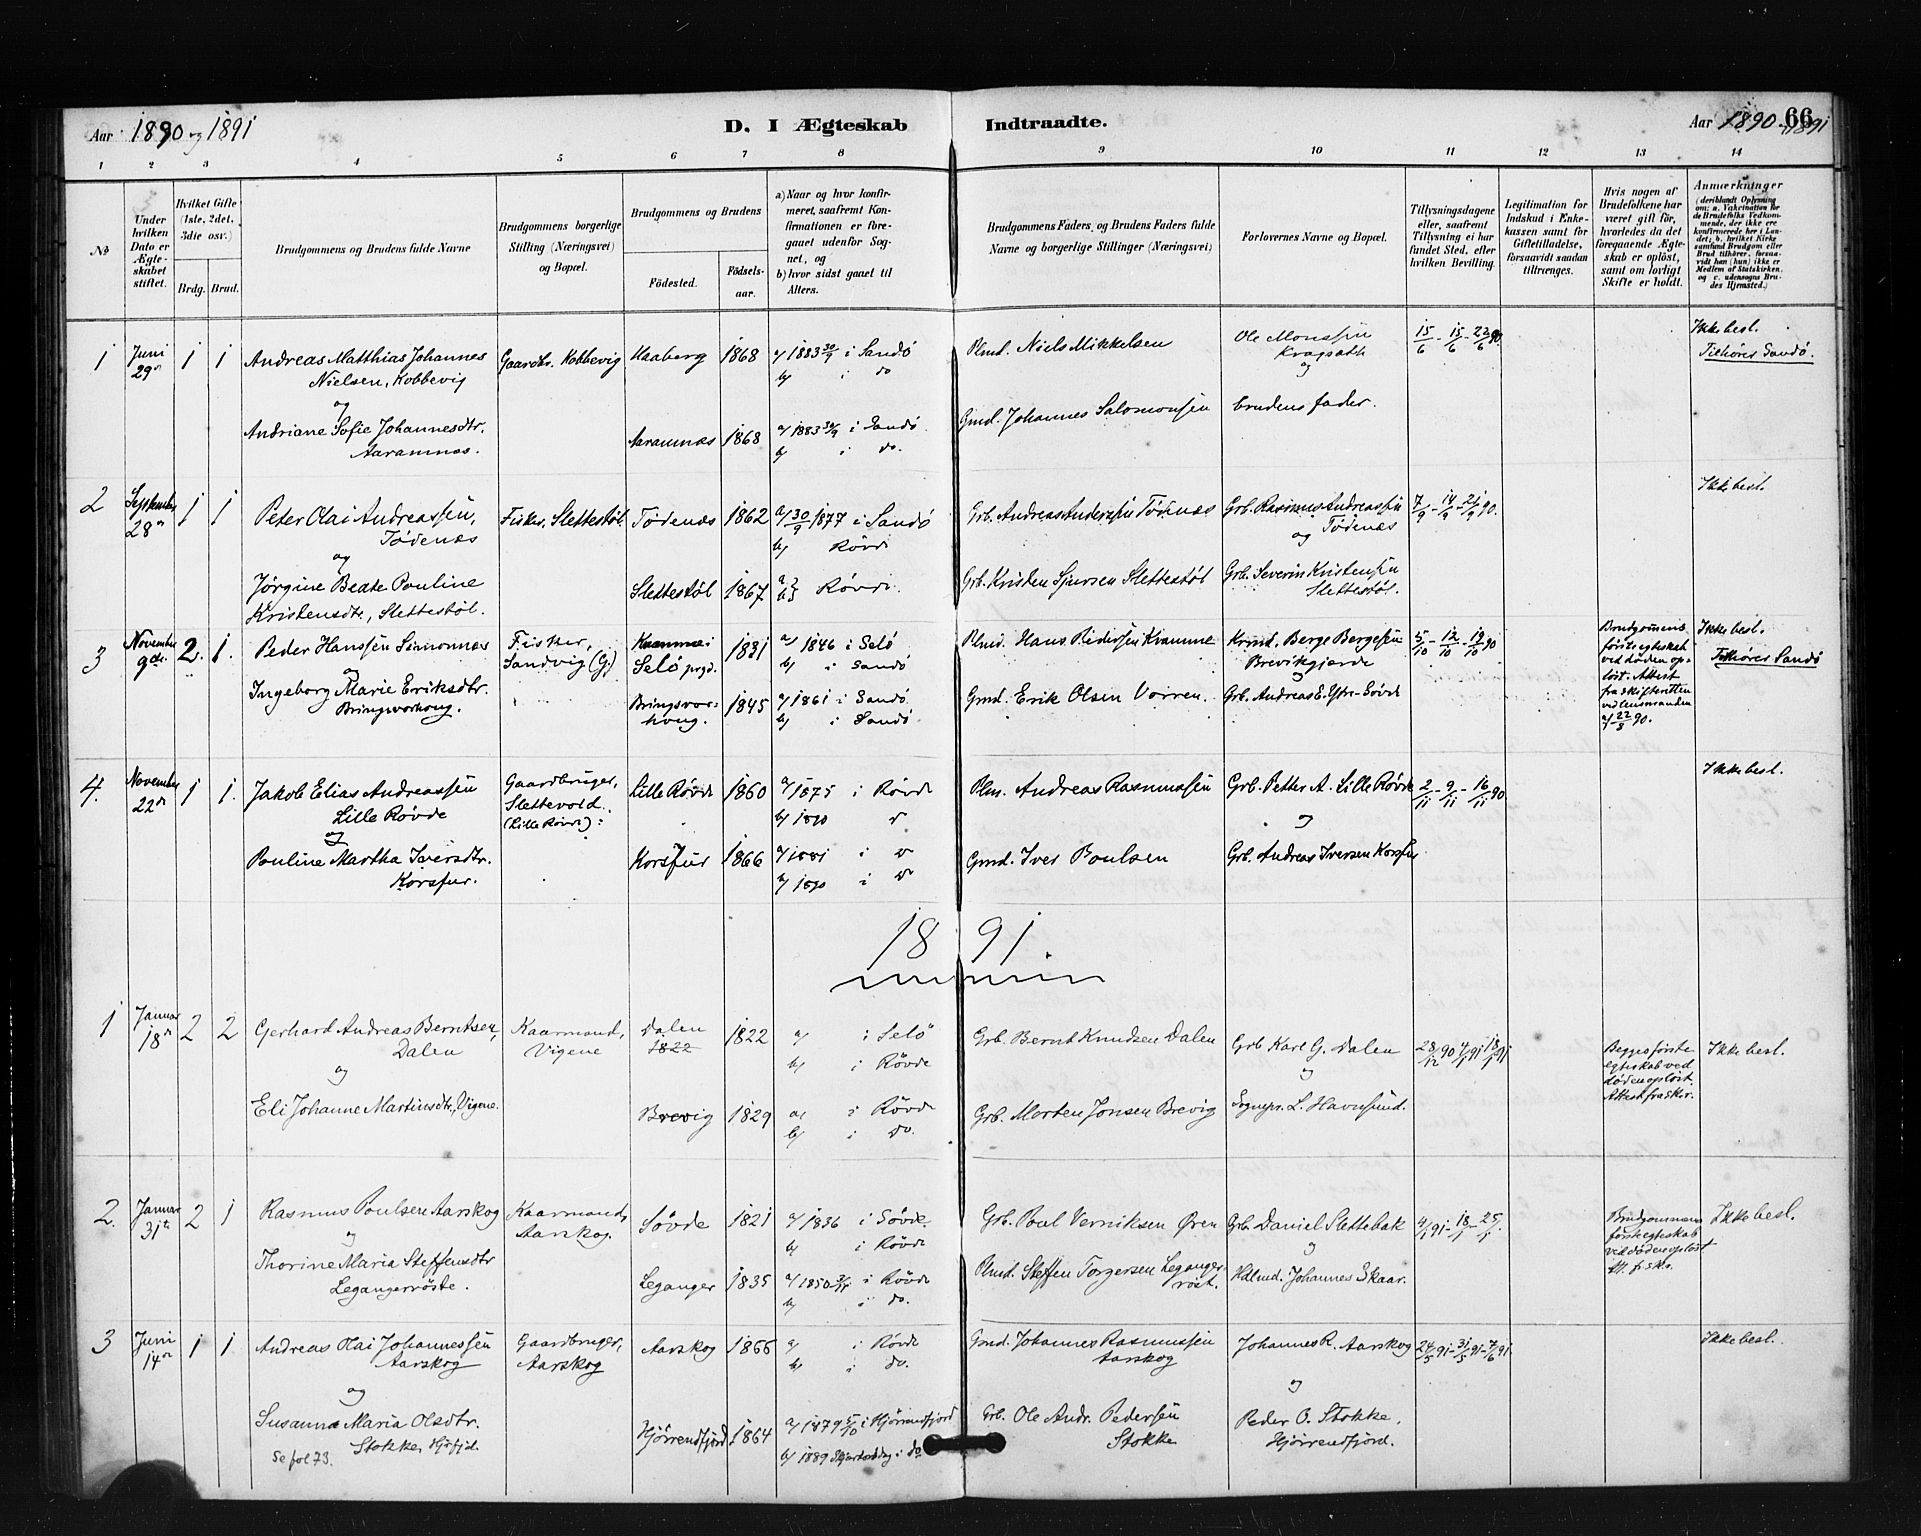 Aar 1890 og 1891
D. I Ægteskab Indtraadte.
Aar 1890 1891
66
1 2 3 4 5 6 7 8 9 10 11 12 13 14
No.
Under hvilken Dato er Ægteskabet stiftet.
Hvilket Gifte (1ste, 2det, 3die osv.)
Brdg. Brud.
Brudgommens og Brudens fulde Navne
Brudgommens borgerlige Stilling (Næringsvei) og Bopæl.
Brudgommens og Brudens
Fødested.
Fødselsaar.
a) Naar og hvor konfirmeret, saafremt Konfirmationen er foregaaet udenfor Sognet, og
b) hvor sidst gaaet til Alters.
Brudgommens Faders, og Brudens Faders fulde Navne og borgerlige Stillinger (Næringsvei)
Forlovernes Navne og Bopæl.
Tillysningsdagene eller, saafremt Tillysning ei har fundet Sted, efter hvilken Bevilling.
Legitimation for Indskud i Enkekassen samt for Giftetilladelse, forsaavidt saadan tiltrænges.
Hvis nogen af Brudefolkene har været gift før, hvorledes da det foregaaende Ægteskab er opløst, samt om lovligt Skifte er holdt.
Anmærkninger
1 Juni 29de 1 1
Andreas Matthias Johannes
Nielsen, Kobbevig
og
Andriane Sofie Johannesdtr.
Aaramnes.
Gaardbr. Kobbevig
Haaberg 1868
a/ 1883 30/9 i Sandö
b/ i do
Aaramnæs 1868
a/ 1883 30/9 i Sandö.
b/ i do.
Plmd. Niels Mikkelsen
Gmd. Johannes Salomonsen
Ole Monssen
og
brudens fader.
15/6 - 15/6 - 22/6 90
Ikke besl.
Tilhører Sandö.
2 September 28de 1 1
Peter Olai Andreassen,
Tødenæs
og
Jørgine Beate Pouline
Kristensdtr., Slettestøl.
Fisker, Slettestøl.
Tødenæs 1862
a/ 30/9 1877 i Sandö
b/ Rövde
Slettestöl 1867
a b} Rövde.
Grb. Andreas Andersen Tödenæs
Grb. Kristen Sjursen Slettestöl
Grb. Rasmus Andreassen
og Tödenæs
Grb. Severin Kristensen
Slettestöl.
7/9 - 14/9 - 21/9 90.
Ikke besl.
3 November 9de 2. 1.
Peder Hanssen Simonnæs
og
Ingeborg Marie Eriksdtr.
Bringsvorhoug.
Fisker,
Sandvig (G.)
Selö prgd. 1831
a/ 1846 i Selö
b/ i Sandö
Bringsvorhoug. 1845
a/ 1861 i Sandö
b/ i Sandö
Plmd. Hans Pedersen Kramme
Gmd. Erik Olsen Vorren.
Krmd. Berge Bergesen
Brevikgjerde
og
5/10 - 12/10 - 19/10 90
Brudgommens
første egteskab
ved døden opløst.
Attest
fra skifteretten
ved lensmanden
a/ 22/8 90.
Ikke besl.
Tilhører Sandö
4. November 22de 1 1.
Jakob Elias Andreassen
Lille Røvde
og
Pouline Martha Iversdtr.
Korsfur.
Gaardbruger,
Slettevold.
(Lille Røvde)
Lille Rövde 1860
a/ 1875 i Rövde
b/ 1890
Korsfur 1866
a/ 1881 i
b/ 1890 i
Plm. Andreas Rasmussen
Gmd. Iver Poulsen
Grb. Petter A. Lille Rövde
og
Grb. Andreas Iversen Korsfur
2/11 - 9/11 - 16/11 90
Ikke besl.
1891.
1 Januar 18de 2 2
Gerhard Andreas Berntsen,
Dalen
og
Eli Johanne Martinsdtr., Vigene.
Kaarmand,
Vigene
Dalen
1822
1822
a/ i Selö
b/ i Røvde
Brevig 1829
a/ i Røvde
b/ i do.
Grb. Bernt Knudsen Dalen
Grb. Morten Jonsen Brevig
Grb Karl G. Dalen
og
Sognepr. L. Havnsund.
28/12 90 4/1 91 18/1 91
Begges første
egteskab ved
døden opløst.
Attest fra skr.
Ikke besl.
2. Januar 31te 2 1
Rasmus Poulsen Aarskog
og
Thorine Maria Steffensdtr
Legangerröste.
Kaarmand,
Aarskog.
Søvde 1821
a/ 1836 i Søvde.
b/ i Røvde
Leganger 1835
a/ 1850 i Røvde
b/ i do.
Grb. Poul Verniksen Øren
Plmd. Steffen Torgersen Legangerröst.
Grb. Daniel Slettebak
og
Hdlmd. Johannes Skaar.
4/1 91 - 18/1 - 25/1.
Brudgommens
første egteskab
ved døden opløst
Ikke besl.
3 Juni 14de 1 1
Andreas Olai Johannessen
Aarskog
og
Susanna Maria Olsdtr.
Stokke, Hjrfjd.
Se fol 73.
Gaardbruger,
Aarskog
Aarskog 1866
a/ i Røvde
b/ i do.
Hjørrendfjord 1864
a/ 1879 5/10 i Hjørrendfjord
b/ 1889 Skjærtorsdag i do
Gmd. Johannes Rasmussen
Aarskog
Grb. Ole Andr. Pedersen
Stokke
Johannes R. Aarskog
og
Peder O. Stokke,
Hjørrendfjord.
24/5 91 - 31/5 91 - 7/6 91
Ikke besl.